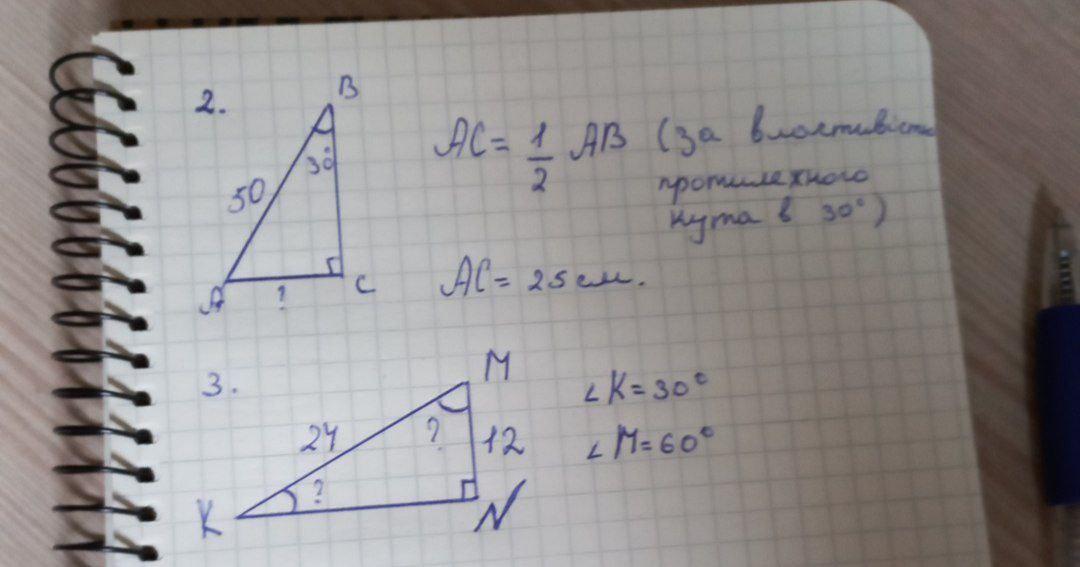 2.
B
30°
50
A
?
C
AC = 1/2 AB (за властивістю
протилежного
кута в 30°)
AC = 25 см.
3.
M
24
?
12
?
K
N
∠K = 30°
∠M = 60°